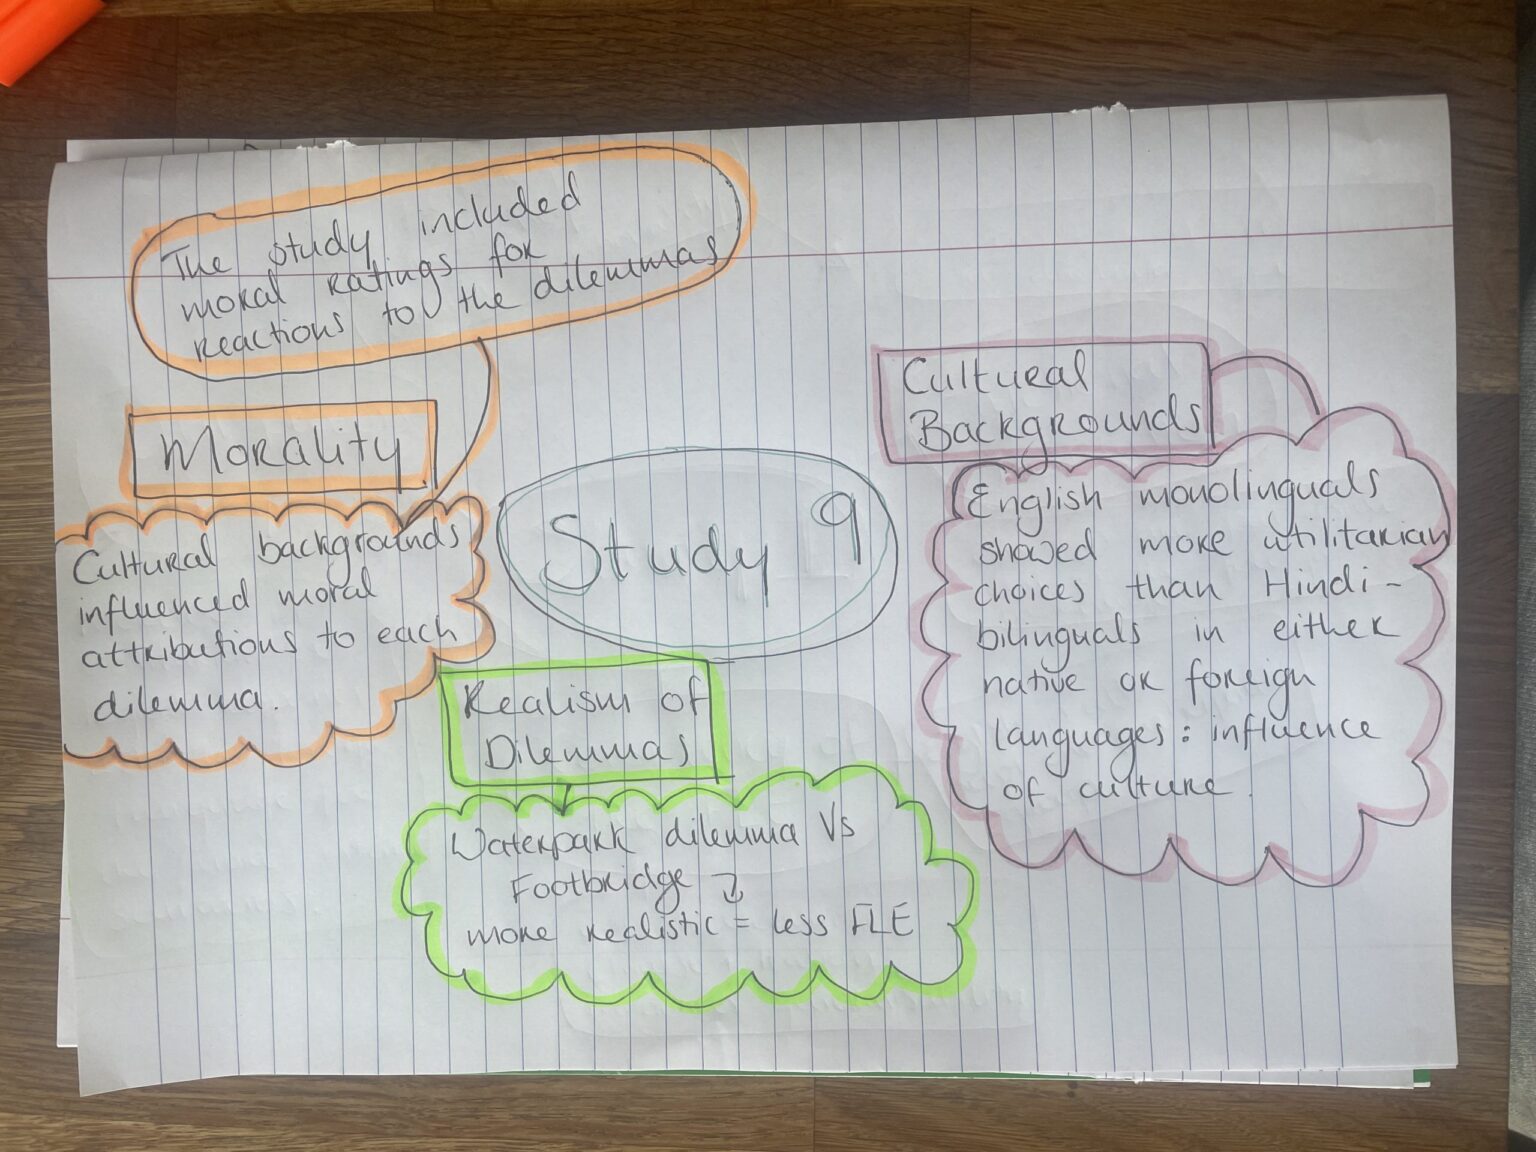 The study included
moral ratings for
reactions to the dilemmas
Morality
Cultural backgrounds
influenced moral
attributions to each
dilemma.
Study 9
Cultural
Backgrounds
English monolinguals
showed more utilitarian
choices than Hindi-
bilinguals in either
native or foreign
languages: influence
of culture.
Realism of
Dilemmas
Waterpark dilemma Vs
Footbridge ↴
more realistic = less FLE